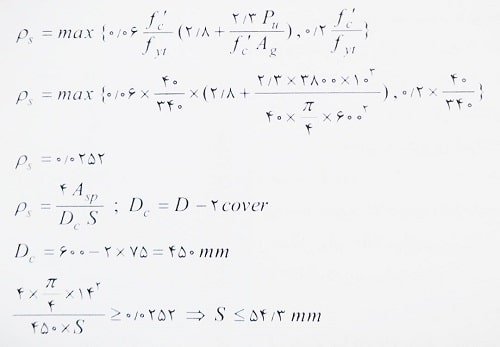 ρs = max {۰/۰۶ f'c/fyt (۲/۸ + ۲/۳ Pu/f'c Ag) , ۰/۲ f'c/fyt}
ρs = max {۰/۰۶ × ۴۰/۳۴۰ × (۲/۸ + ۲/۳ × ۳۸۰۰ × ۱۰^۳/۴۰ × π/۴ × ۶۰۰^۲) , ۰/۲ × ۴۰/۳۴۰}
ρs = ۰/۰۲۵۲
ρs = ۴ Asp/Dc S ; Dc = D − ۲ cover
Dc = ۶۰۰ − ۲ × ۷۵ = ۴۵۰ mm
۴ × π/۴ × ۱۴^۲/۴۵۰ × S ≥ ۰/۰۲۵۲ ⇒ S ≤ ۵۴/۳ mm